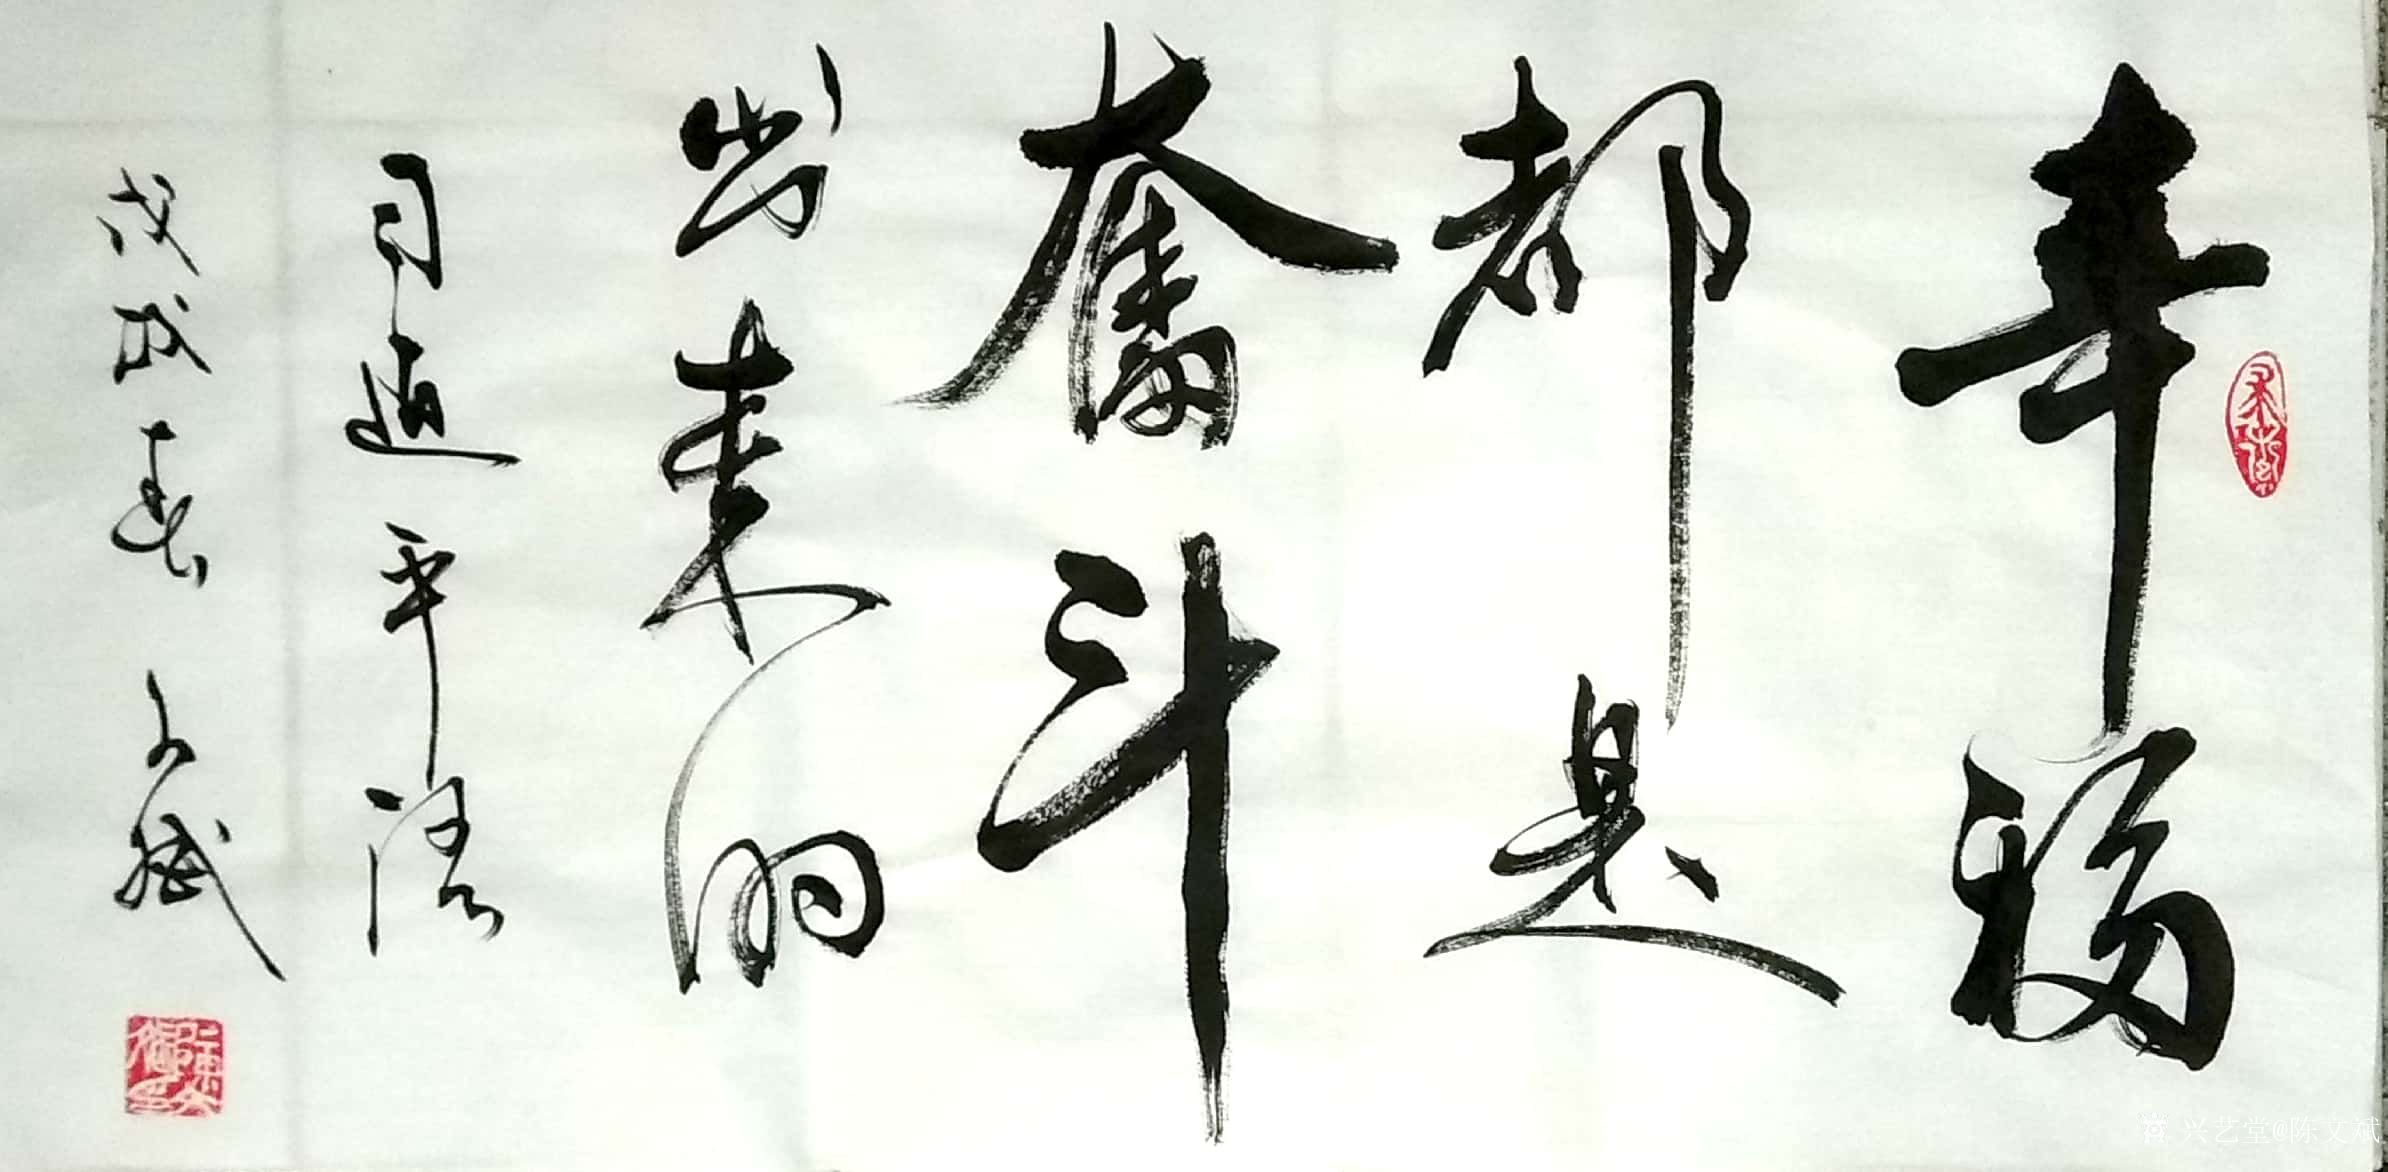 幸福
都是
奮斗
出来的
习近平语
戊戌春 文斌
兴艺堂@陈文斌